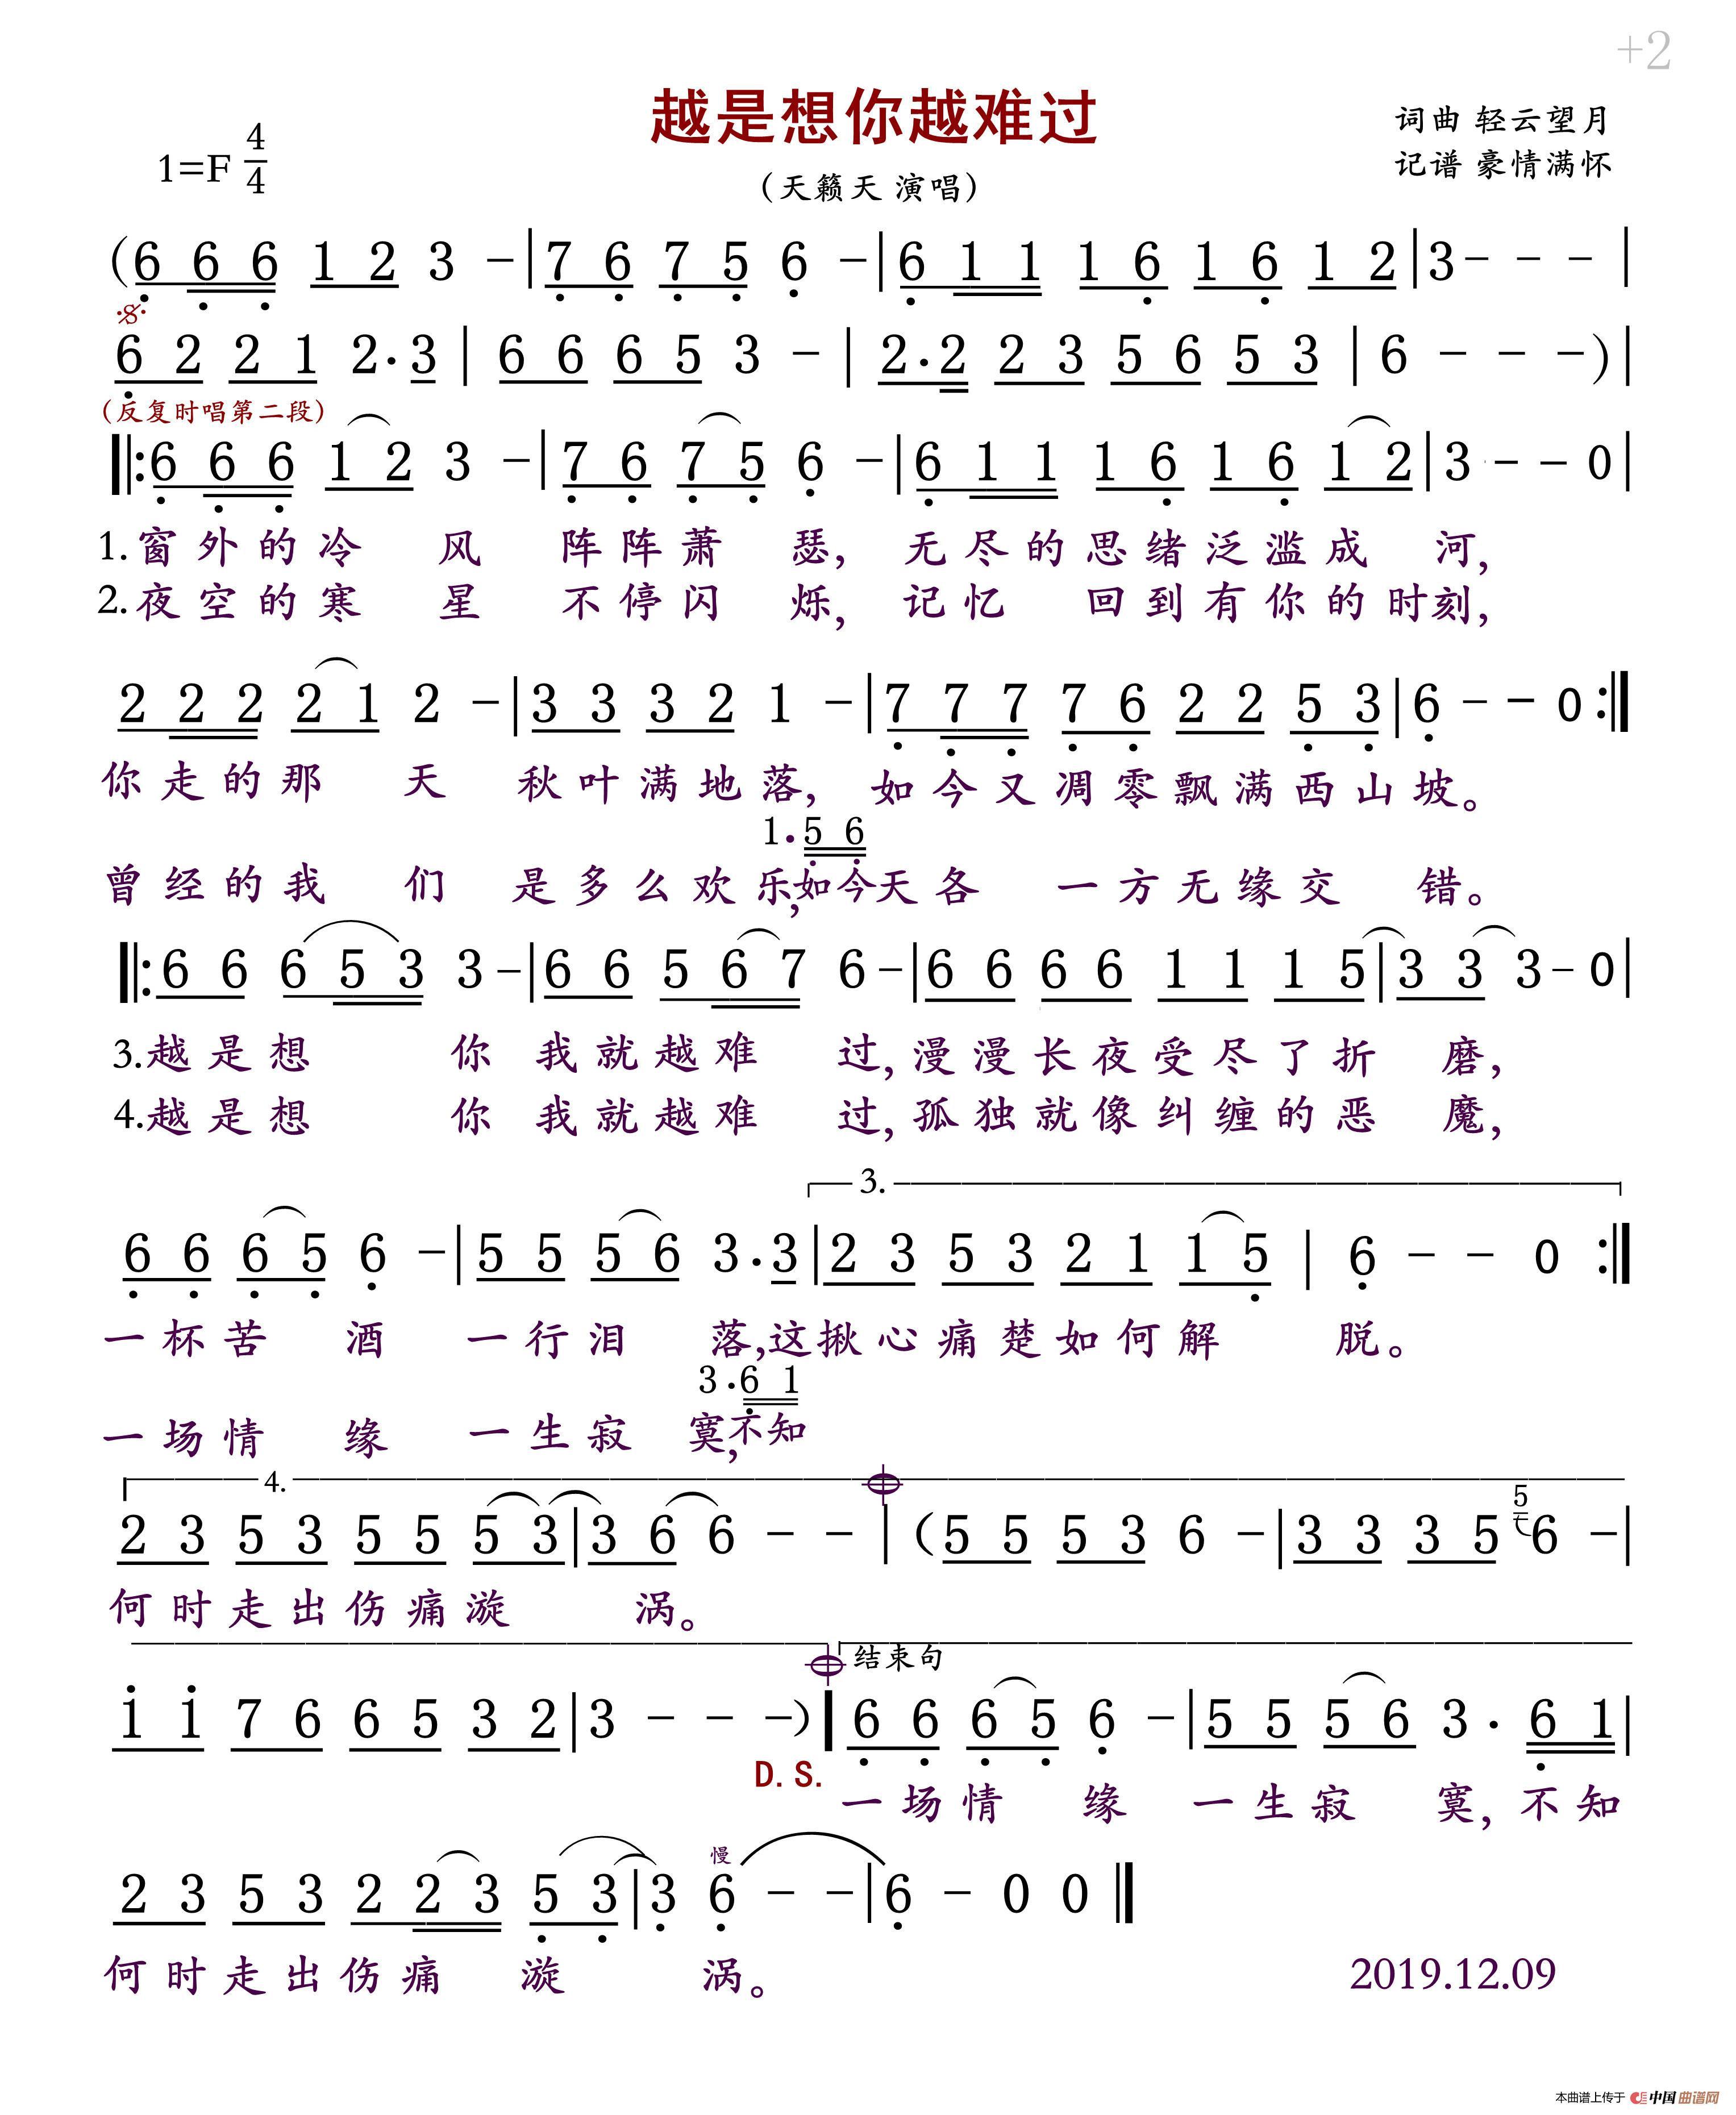 +2
越是想你越难过
词曲 轻云望月
1=F 4/4
记谱 豪情满怀
（天籁天 演唱）
(6 6 6 1 2 3 － | 7 6 7 5 6 － | 6 1 1 1 6 1 6 1 2 | 3 － － － |
6 2 2 1 2 · 3 | 6 6 6 5 3 － | 2 · 2 2 3 5 6 5 3 | 6 － － － ) |
（反复时唱第二段）
‖: 6 6 6 1 2 3 － | 7 6 7 5 6 － | 6 1 1 1 6 1 6 1 2 | 3 － － 0 |
1. 窗外的冷 风 阵阵萧 瑟， 无尽的思绪泛滥成 河，
2. 夜空的寒 星 不停闪 烁， 记忆 回到有你的时刻，
2 2 2 2 1 2 － | 3 3 3 2 1 － | 7 7 7 7 6 2 2 5 3 | 6 － － 0 :‖
你走的那 天 秋叶满地落， 如今又凋零飘满西山坡。
1 · 5 6
曾经的我 们 是多么欢乐，如今天各 一方无缘交 错。
‖: 6 6 6 5 3 3 － | 6 6 5 6 7 6 － | 6 6 6 6 1 1 1 5 | 3 3 3 － 0 |
3. 越是想 你 我就越难 过，漫漫长夜受尽了折 磨，
4. 越是想 你 我就越难 过，孤独就像纠缠的恶 魔，
3.
6 6 6 5 6 － | 5 5 5 6 3 · 3 | 2 3 5 3 2 1 1 5 | 6 － － 0 :‖
一杯苦 酒 一行泪 落，这揪心痛楚如何解 脱。
3 · 6 1
一场情 缘 一生寂 寞，不知
4.
5
2 3 5 3 5 5 5 3 | 3 6 6 － － | (5 5 5 3 6 － | 3 3 3 5 6 － |
何时走出伤痛漩 涡。
结束句
1 1 7 6 6 5 3 2 | 3 － － － ) | 6 6 6 5 6 － | 5 5 5 6 3 · 6 1 |
D.S.
一场情 缘 一生寂 寞，不知
慢
2 3 5 3 2 2 3 5 3 | 3 6 － － | 6 － 0 0 ‖
何时走出伤痛 漩 涡。
2019.12.09
本曲谱上传于 中国曲谱网